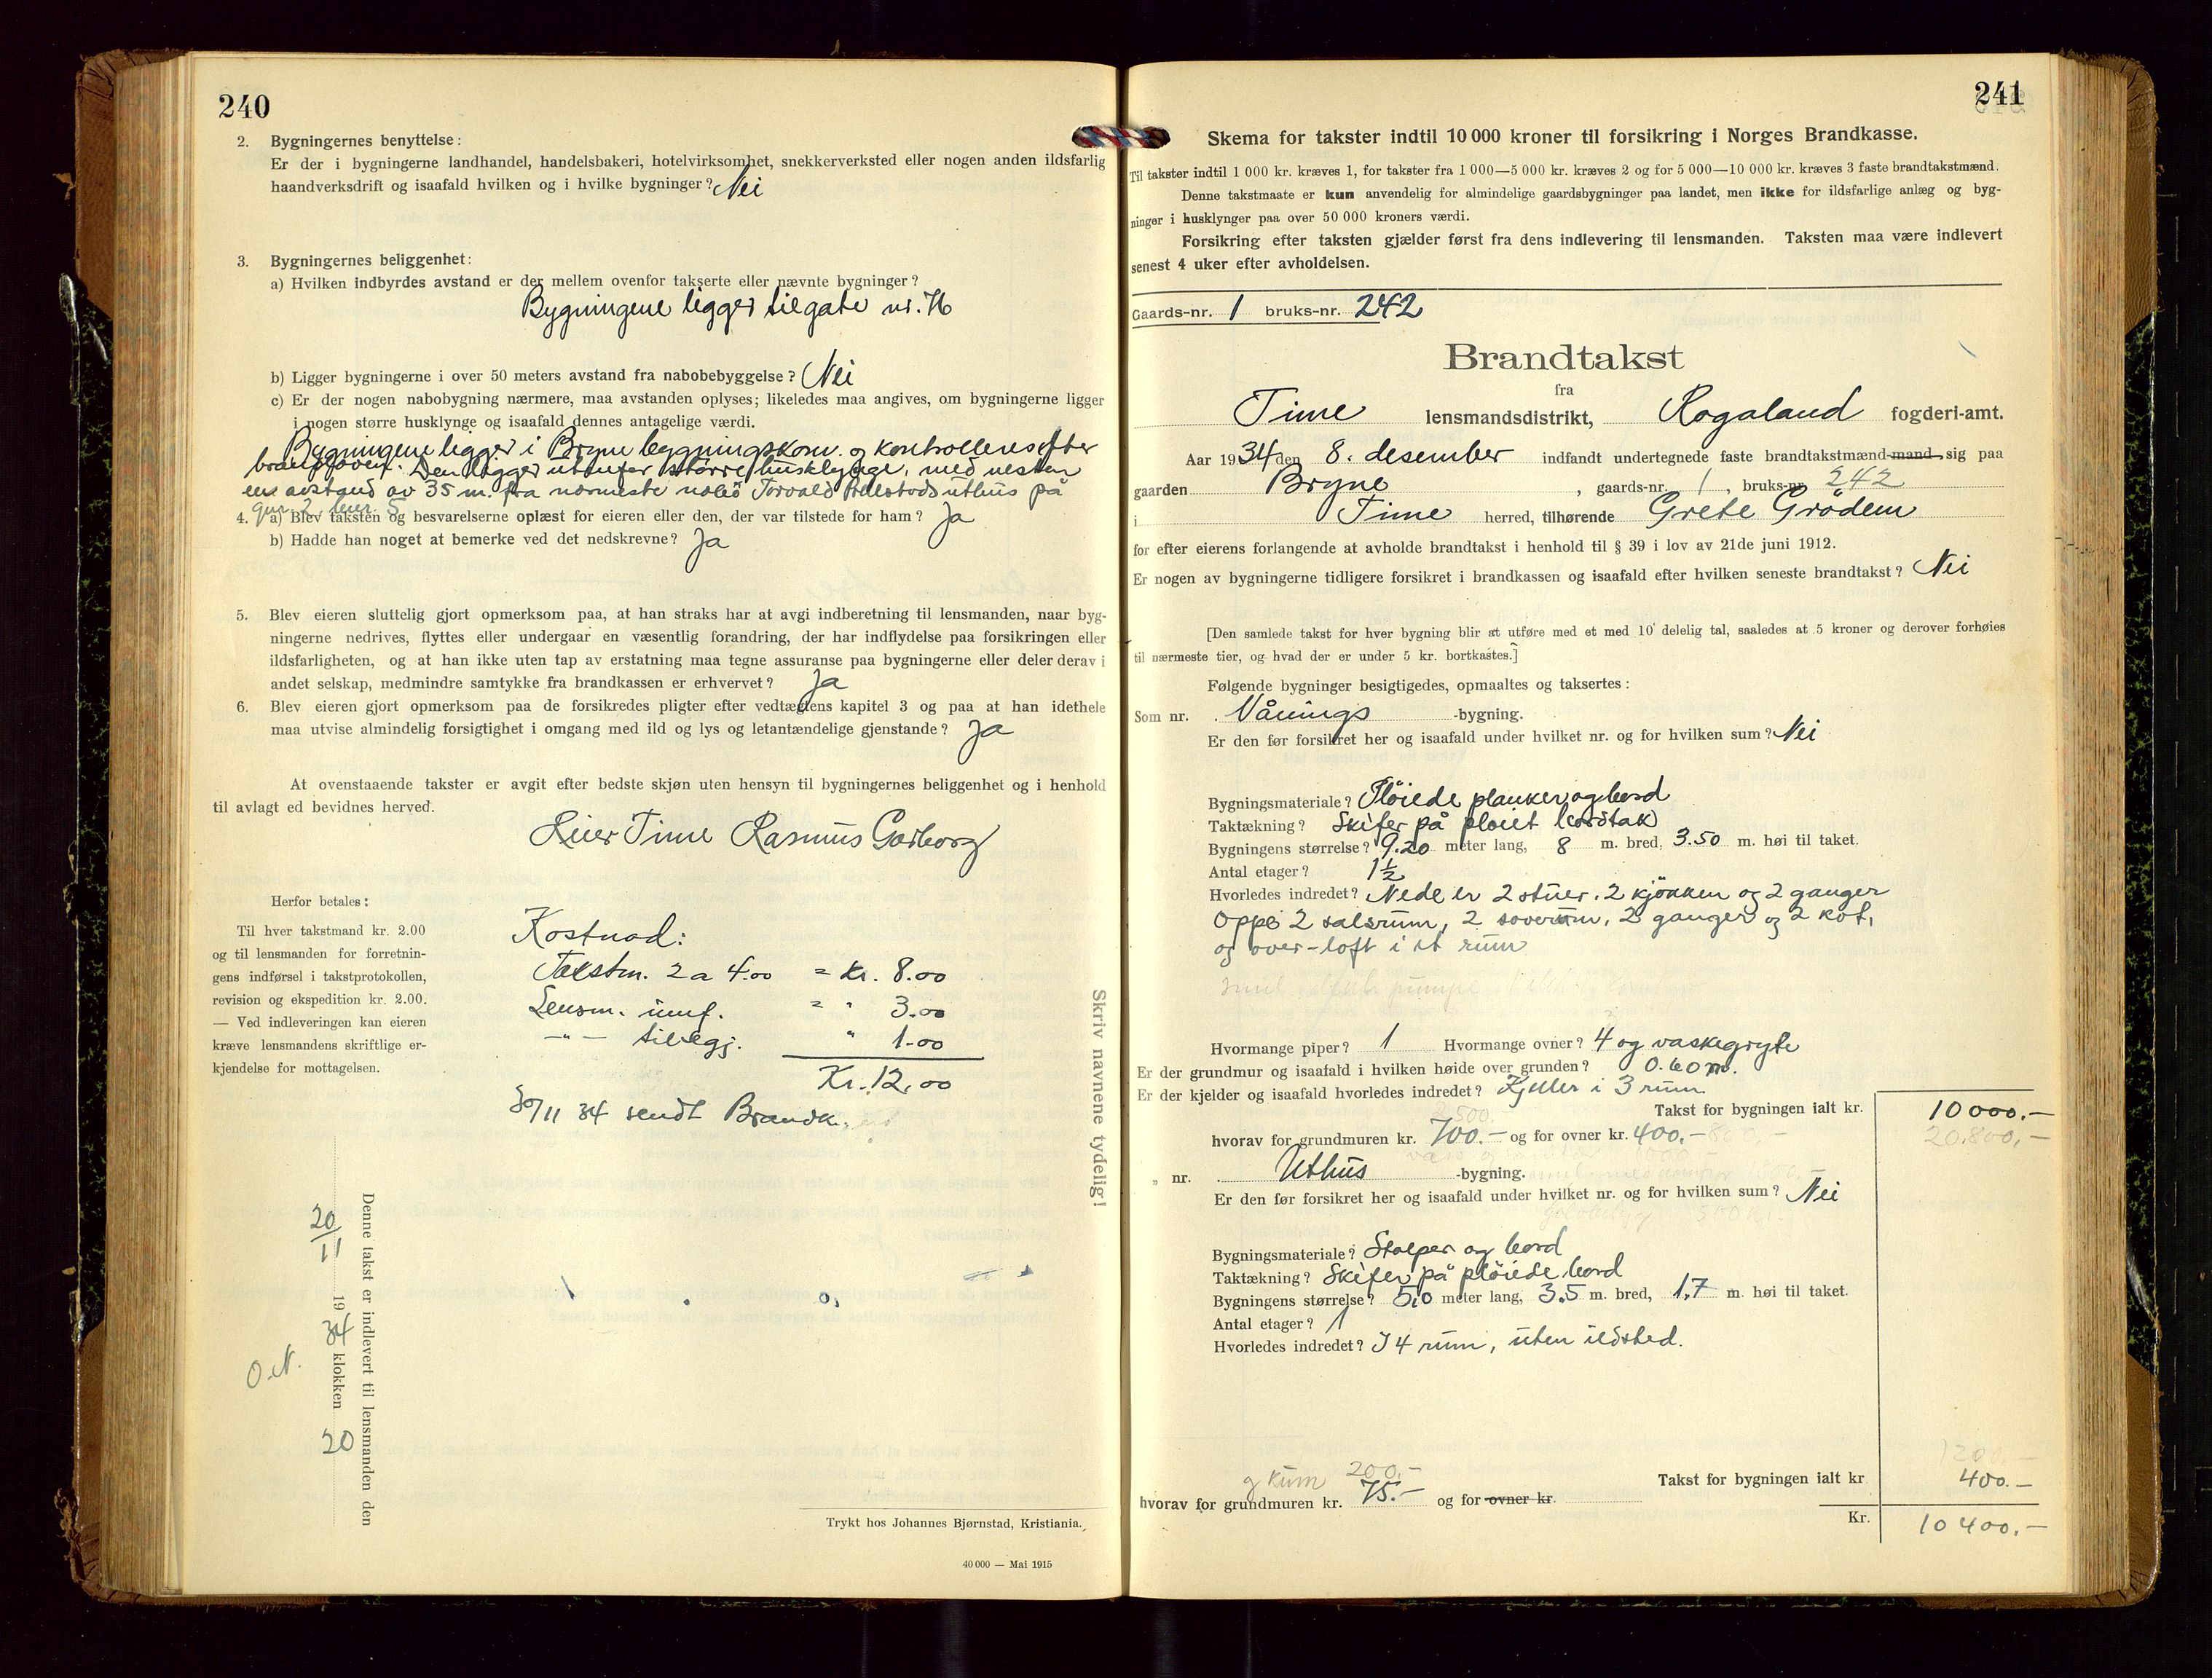 240
2. Bygningernes benyttelse:
Er der i bygningerne landhandel, handelsbakeri, hotelvirksomhet, snekkerverksted eller nogen anden ildsfarlig
haandverksdrift og isaafald hvilken og i hvilke bygninger? Nei
3. Bygningernes beliggenhet:
a) Hvilken indbyrdes avstand er der mellem ovenfor takserte eller nævnte bygninger?
Bygningene ligger til gate nr.
b) Ligger bygningerne i over 50 meters avstand fra nabobebyggelse? Nei
c) Er der nogen nabobygning nærmere, maa avstanden oplyses; likeledes maa angives, om bygningerne ligger
i nogen større husklynge og isaafald dennes antagelige værdi.
Bygningene ligger i Bryne bygningskom. og kontrolleres efter
branloven. Den ligger utenfor større husklynge, med nesten
en avstand av 35 m. fra nærmeste nabo Torvald uthus på
gnr. 2 bnr. 5
4. a) Blev taksten og besvarelserne oplæst for eieren eller den, der var tilstede for ham? Ja
b) Hadde han noget at bemerke ved det nedskrevne? Ja
5. Blev eieren sluttelig gjort opmerksom paa, at han straks har at avgi indberetning til lensmanden, naar byg-
ningerne nedrives, flyttes eller undergaar en væsentlig forandring, der har indflydelse paa forsikringen eller
ildsfarligheten, og at han ikke uten tap av erstatning maa tegne assuranse paa bygningerne eller deler derav i
andet selskap, medmindre samtykke fra brandkassen er erhvervet? Ja
6. Blev eieren gjort opmerksom paa de forsikredes pligter efter vedtægtens kapitel 3 og paa at han idethele
maa utvise almindelig forsigtighet i omgang med ild og lys og letantændelige gjenstande? Ja
At ovenstaaende takster er avgit efter bedste skjøn uten hensyn til bygningernes beliggenhet og i henhold
til avlagt ed bevidnes herved.
Reier Time Rasmus Garborg
Herfor betales:
Til hver takstmand kr. 2.00
og til lensmanden for forretnin-
gens indførsel i takstprotokollen,
revision og ekspedition kr. 2.00.
— Ved indleveringen kan eieren
kræve lensmandens skriftlige er-
kjendelse for mottagelsen.
Kostnad:
Takstm. 2 a 4.00 = Kr. 8.00
Lensm. innf. = " 3.00
-"- tillegj. " 1.00
Kr. 12.00
30/11 34 sendt Brandk.
Skriv navnene tydelig!
Denne takst er indlevert til lensmanden den
20/11 1934 klokken 20
O.N.
Trykt hos Johannes Bjørnstad, Kristiania.
40 000 — Mai 1915
241
Skema for takster indtil 10 000 kroner til forsikring i Norges Brandkasse.
Til takster indtil 1 000 kr. kræves 1, for takster fra 1 000—5 000 kr. kræves 2 og for 5 000—10 000 kr. kræves 3 faste brandtakstmænd.
Denne takstmaate er kun anvendelig for almindelige gaardsbygninger paa landet, men ikke for ildsfarlige anlæg og byg-
ninger i husklynger paa over 50 000 kroners værdi.
Forsikring efter taksten gjælder først fra dens indlevering til lensmanden. Taksten maa være indlevert
senest 4 uker efter avholdelsen.
Gaards-nr. 1 bruks-nr. 242
Brandtakst
fra
Time lensmandsdistrikt, Rogaland fogderi-amt.
Aar 1934 den 8. desember indfandt undertegnede faste brandtakstmænd mand sig paa
gaarden Bryne, gaards-nr. 1, bruks-nr. 242
i Time herred, tilhørende Grete Grödem
for efter eierens forlangende at avholde brandtakst i henhold til § 39 i lov av 21de juni 1912.
Er nogen av bygningerne tidligere forsikret i brandkassen og isaafald efter hvilken seneste brandtakst? Nei
[Den samlede takst for hver bygning blir at utføre med et med 10 delelig tal, saaledes at 5 kroner og derover forhøies
til nærmeste tier, og hvad der er under 5 kr. bortkastes.]
Følgende bygninger besigtigedes, opmaaltes og taksertes:
Som nr. Vånings -bygning.
Er den før forsikret her og isaafald under hvilket nr. og for hvilken sum? Nei
Bygningsmateriale? Plöiede planker og bord
Taktækning? Skifer på plöiet bordtak
Bygningens størrelse? 9.20 meter lang, 8 m. bred, 3.50 m. høi til taket.
Antal etager? 1½
Hvorledes indredet? Nede er 2 stuer, 2 kjökken og 2 ganger
Oppe 2 salsrum, 2 soverum, 2 ganger og 2 kot,
og over-loft i et rum
Hvormange piper? 1 Hvormange ovner? 4 og vaskegryte
Er der grundmur og isaafald i hvilken høide over grunden? 0.60 m.
Er der kjelder og isaafald hvorledes indredet? Kjeller i 3 rum
Takst for bygningen ialt kr. 10000.—
20.800,—
hvorav for grundmuren kr. 700.— og for ovner kr. 400.—
" nr. Uthus -bygning.
Er den før forsikret her og isaafald under hvilket nr. og for hvilken sum? Nei
Bygningsmateriale? Stolper og bord
Taktækning? Skifer på plöiede bord
Bygningens størrelse? 5,0 meter lang, 3.5 m. bred, 1,7 m. høi til taket.
Antal etager? 1
Hvorledes indredet? I 4 rum, uten ildsted.
1200.—
og kum 200.—
Takst for bygningen ialt kr 400.—
hvorav for grundmuren kr. 75.— og for ovner kr.
Kr. 10400.—